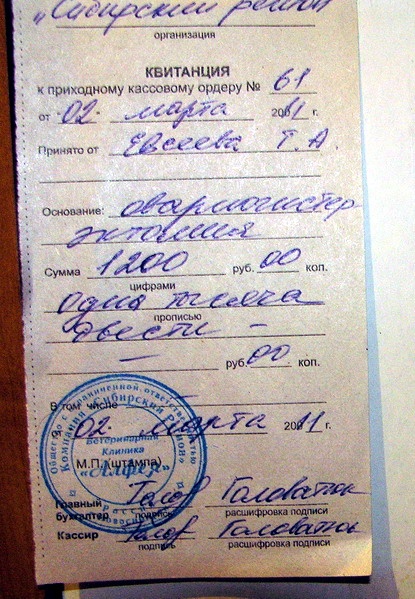 "Сибирский регион"
организация
КВИТАНЦИЯ
к приходному кассовому ордеру № 61
от 02. марта 2011 г.
Принято от Евсеева Т.А.
Основание: овариогистер
эктомия
Сумма 1200 руб. 00 коп.
цифрами
Одна тысяча
прописью
двести –
— руб. 00 коп.
В том числе —
02 марта 2011 г.
Общество с ограниченной ответственностью
Компания "Сибирский Регион"
ветеринарная
Клиника
М.П. (штампа)
Главный Голов Головатюк
бухгалтер подпись расшифровка подписи
Кассир Голов Головатюк
подпись расшифровка подписи